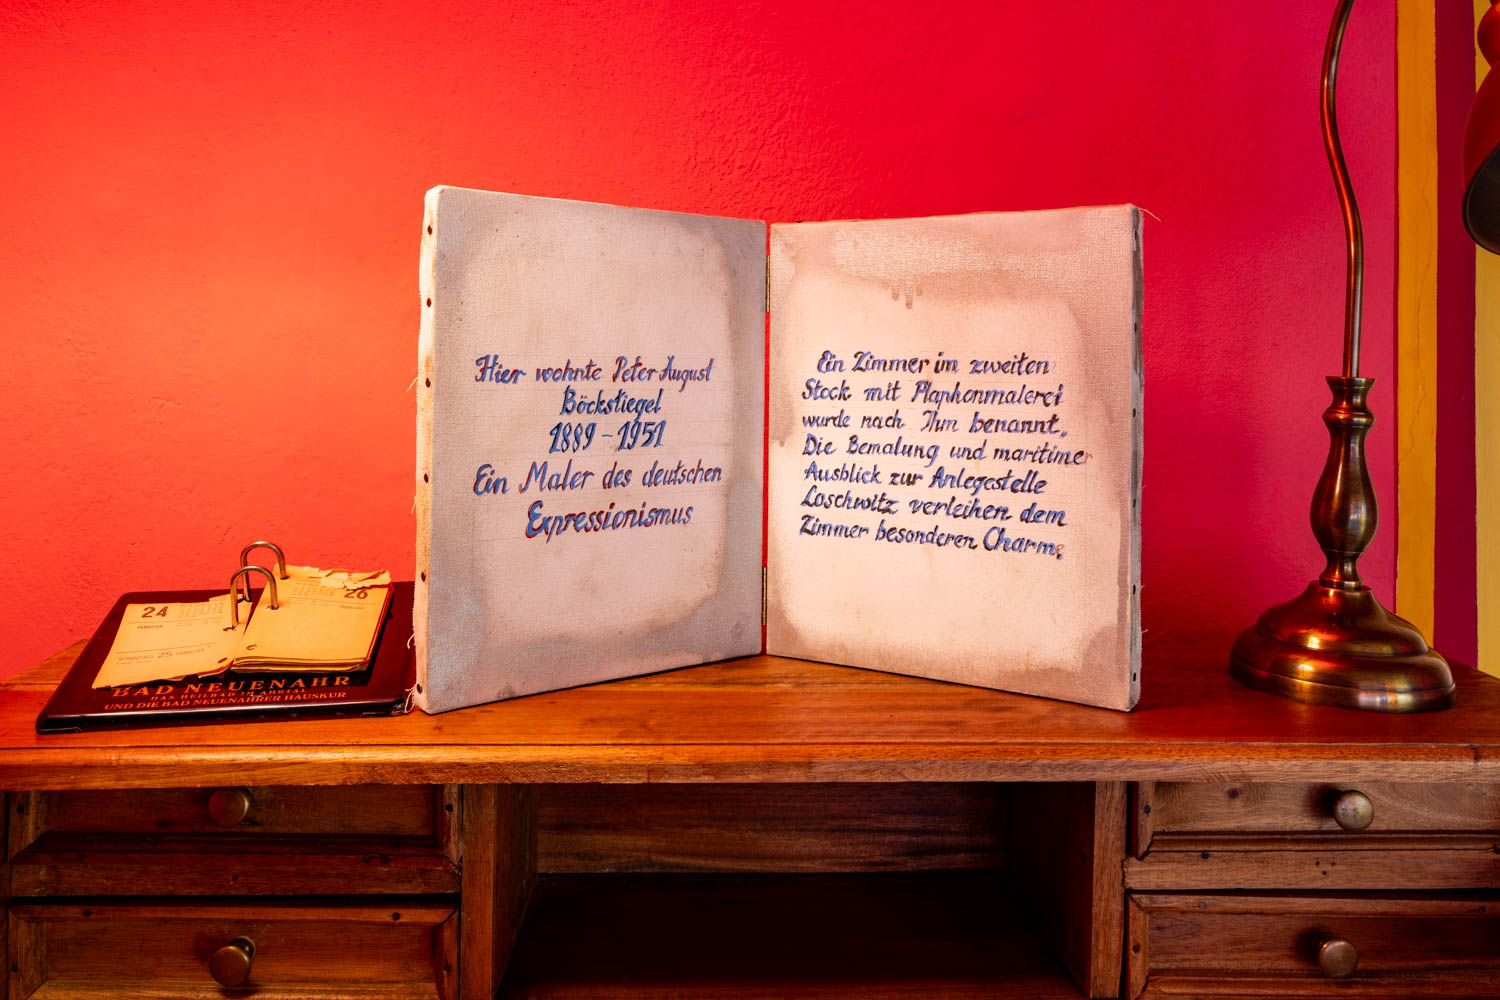 Hier wohnte Peter August
Böckstiegel
1889 - 1951
Ein Maler des deutschen
Expressionismus
Ein Zimmer im zweiten
Stock mit Plaphonmalerei
wurde nach Ihm benannt.
Die Bemalung und maritimer
Ausblick zur Anlegestelle
Loschwitz verleihen dem
Zimmer besonderen Charm.
24
FEBRUAR
SONNTAG 25 FEBRUAR
26
FEBRUAR
BAD NEUENAHR
DAS HEILBAD IM AHRTAL
UND DIE BAD NEUENAHRER HAUSKUR